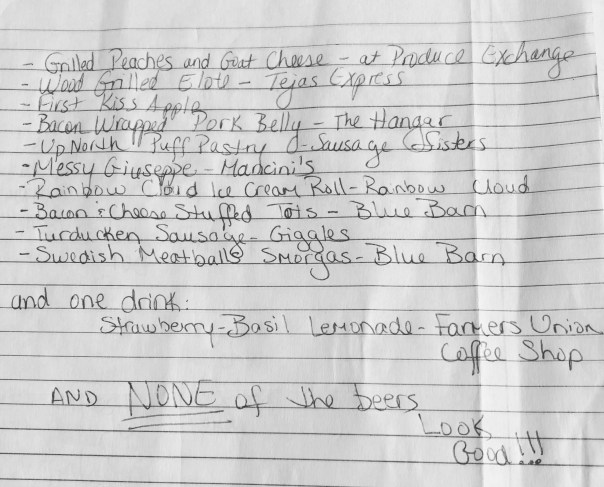 - Grilled Peaches and Goat Cheese - at Produce Exchange
- Wood Grilled Elote - Tejas Express
- First Kiss Apple
- Bacon Wrapped Pork Belly - The Hangar
- Up North Puff Pastry - Sausage Sisters
- Messy Giuseppe - Mancini's
- Rainbow Cloud Ice Cream Roll - Rainbow Cloud
- Bacon & Cheese Stuffed Tots - Blue Barn
- Turducken Sausage - Giggles
- Swedish Meatballs Smorgas - Blue Barn
and one drink:
Strawberry-Basil Lemonade - Farmers Union
Coffee Shop
AND NONE of the beers
Look
Good!!!